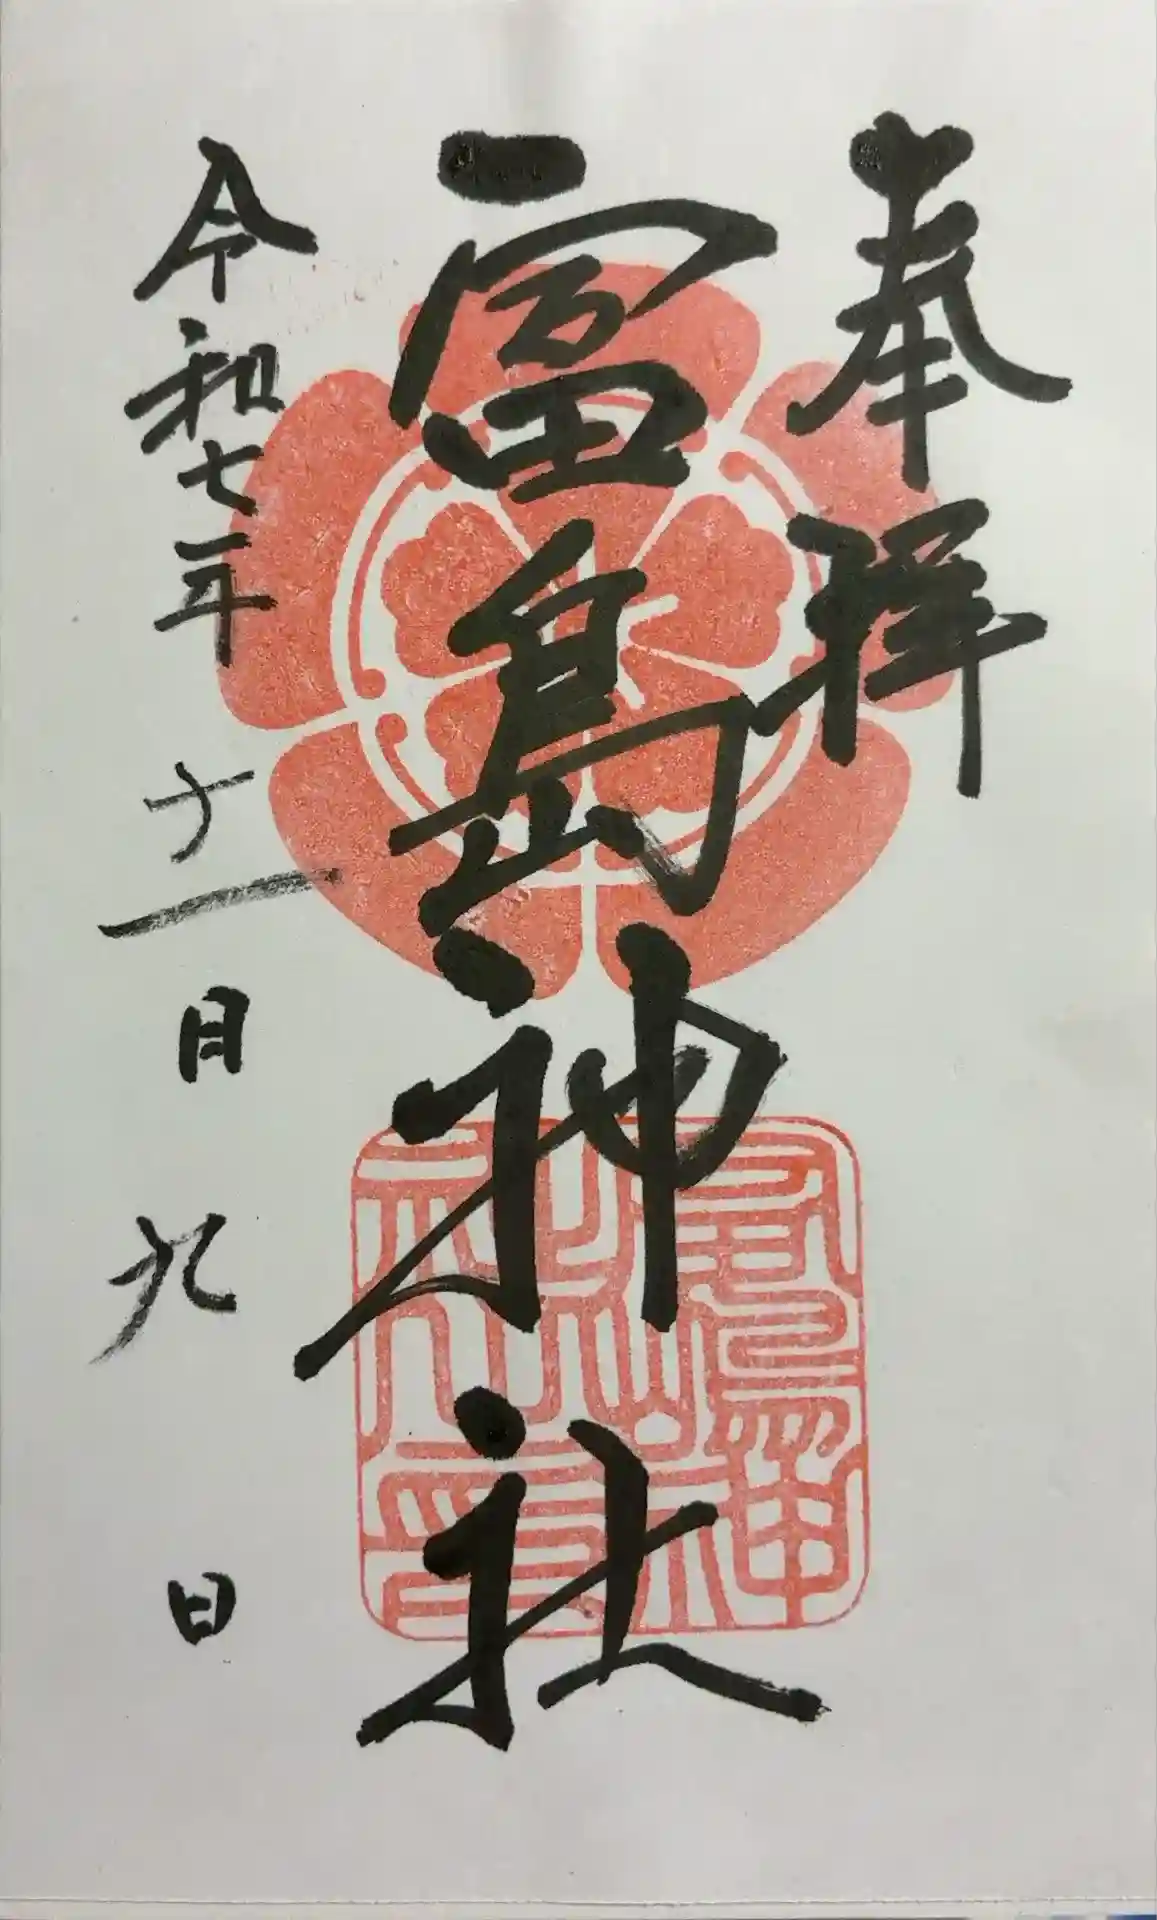 奉拝
富島神社
令和七年十一月九日